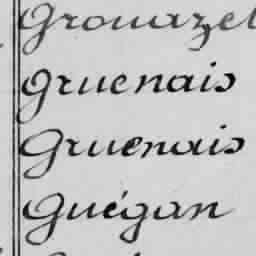 Grouazel
Gruenais
Gruenais
Guégan